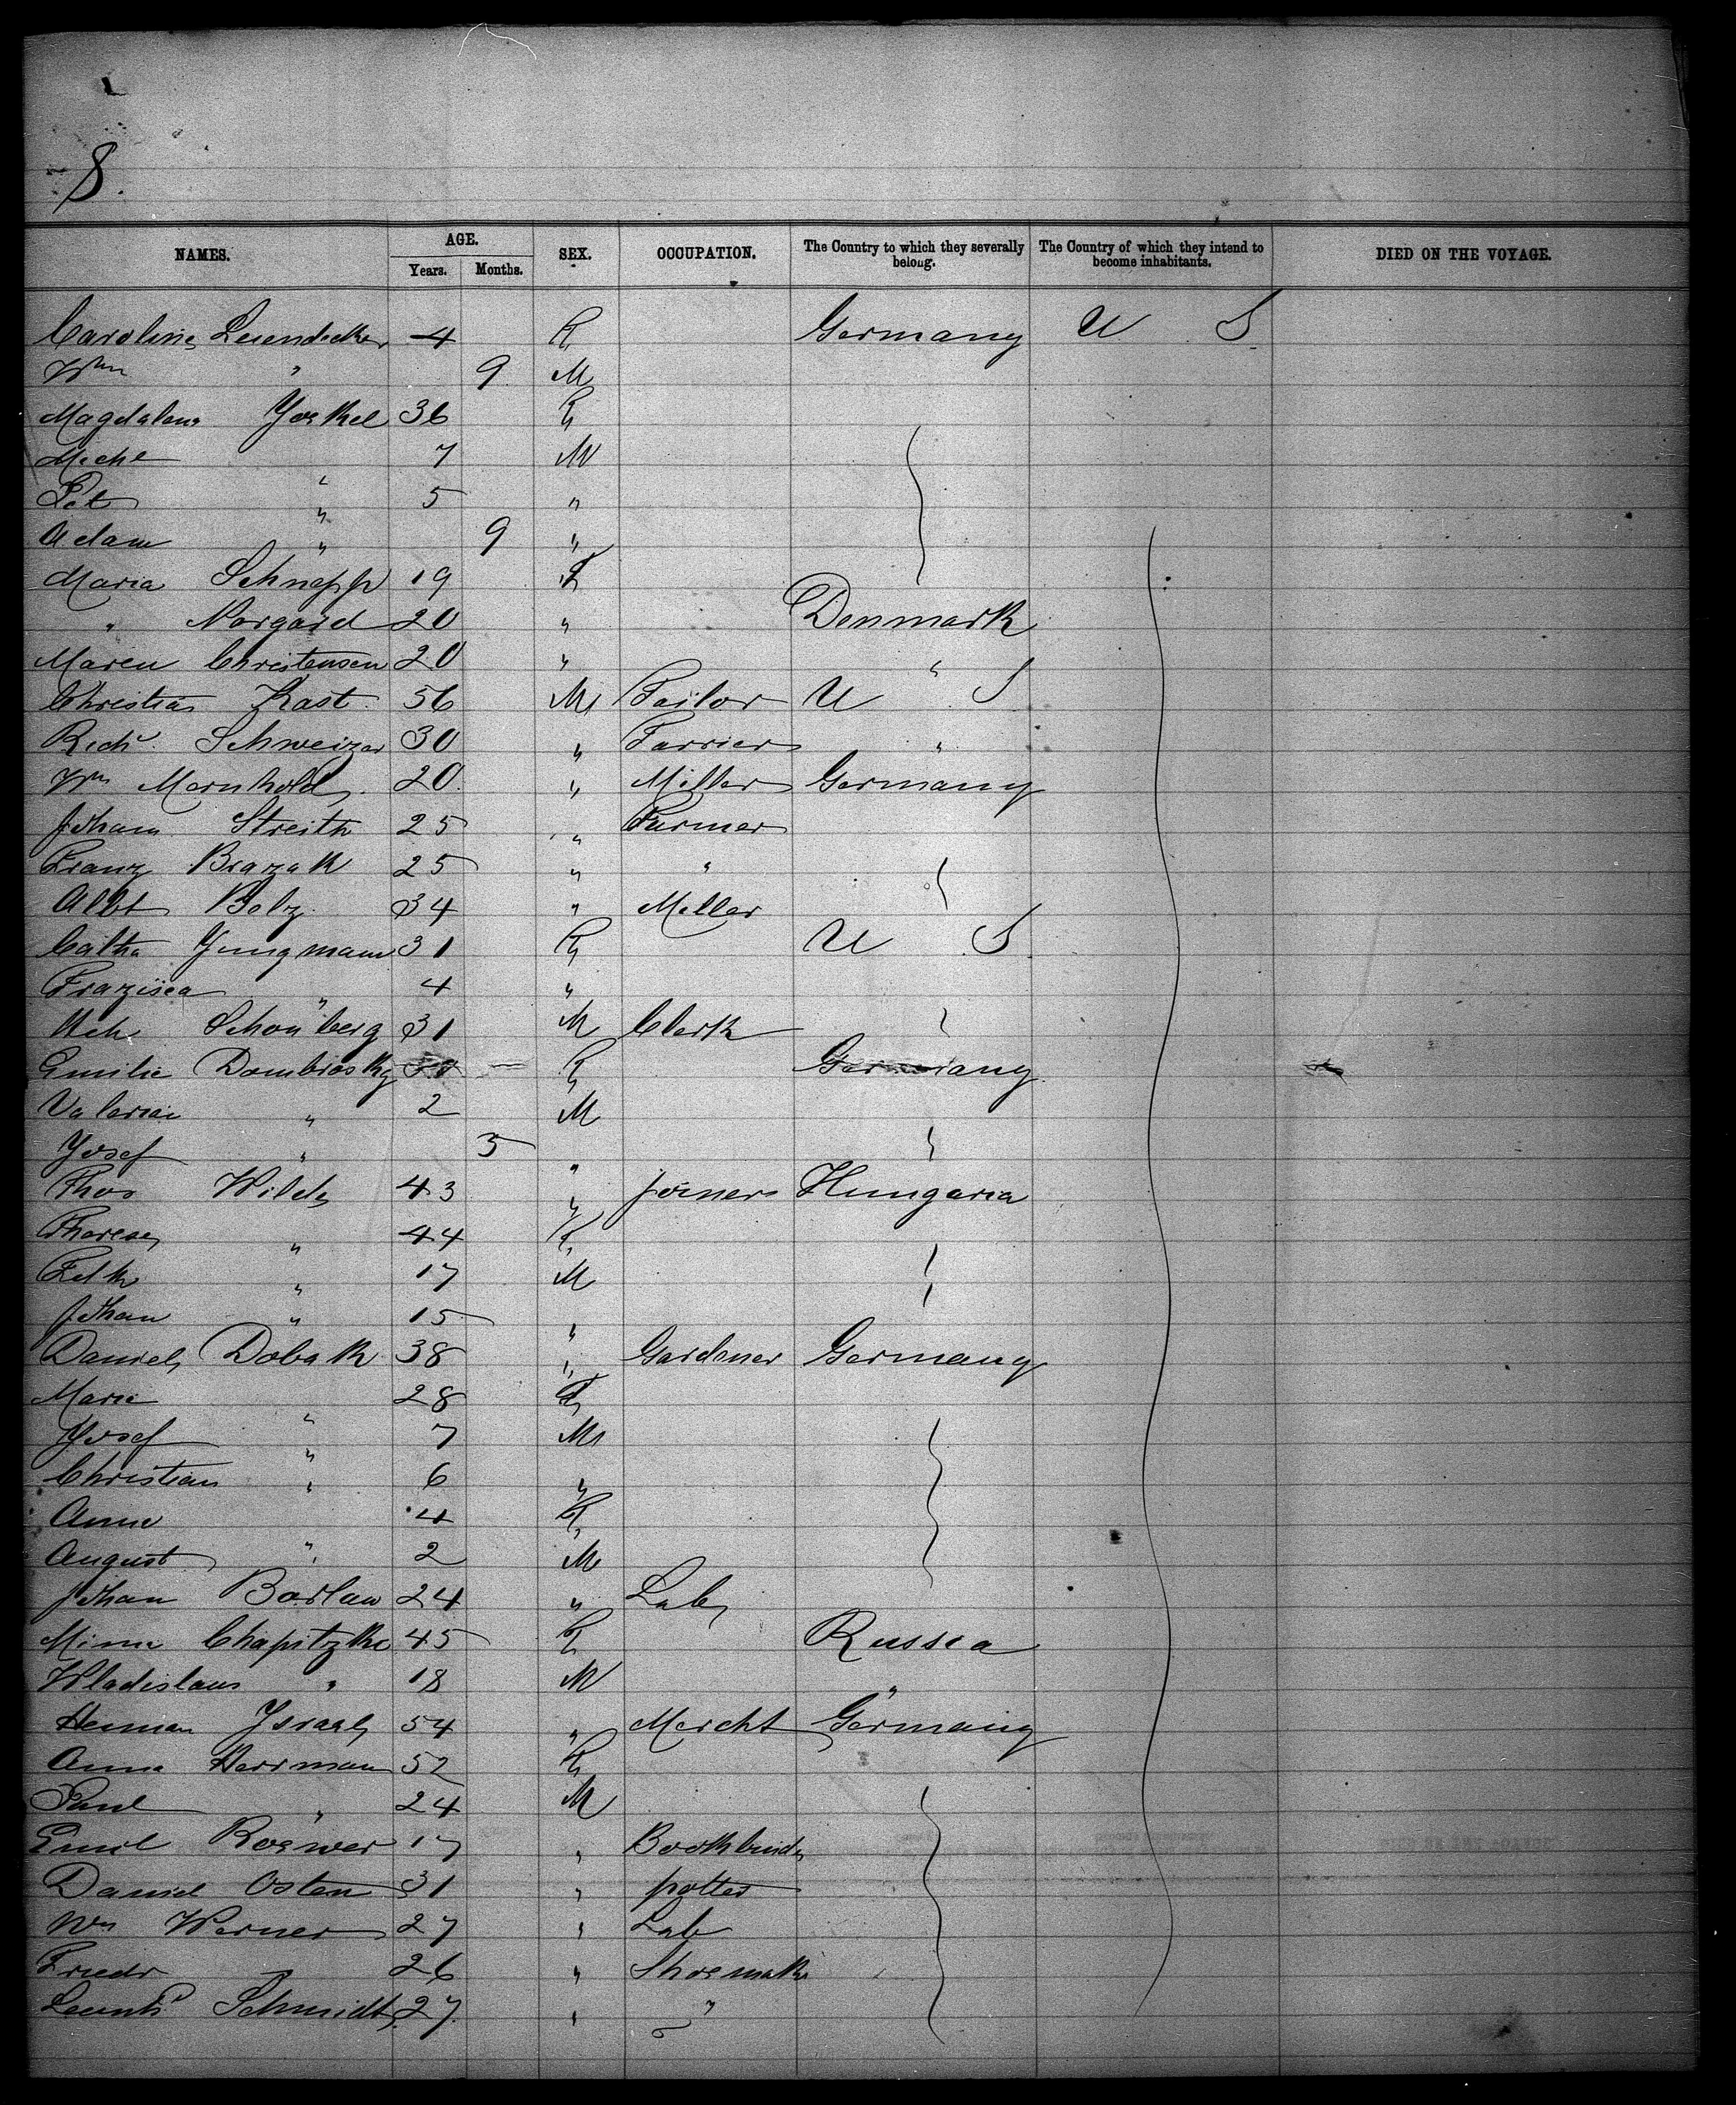 8.
NAMES. AGE. Years. Months. SEX. OCCUPATION. The Country to which they severally belong. The Country of which they intend to become inhabitants. DIED ON THE VOYAGE.
Caroline Leiendecker 4 F Germany U S
Wm " 9 M
Magdalena Yoekel 36 F
Michl " 7 M
Pet " 5 "
Adam " 9 "
Maria Schnepp 19 F
" Norgard 20 " Denmark
Maren Christensen 20 " "
Christian Kast 56 M Tailor U S
Richd Schweizer 30 " Farrier "
Wm Mernhold 20 " Miller Germany
Johann Streith 25 " Farmer
Franz Brazak 25 " "
Albt Belz 34 " Miller
Catha Jungmann 31 F U S
Frazisca " 4 "
Schonberg 31 M Clerk
Emilie Dombrosky F Germany
Valerian " 2 M
Josef " 5 "
Thos Wilds 43 " joiner Hungaria
Therese " 44 F
" 17 M
Johan " 15 "
Daniel Dobak 38 " Gardener Germany
Marie " 28 F
Josef " 7 M
Christian " 6 "
Anna " 4 F
August " 2 M
Johan Borlau 24 " Lab
Minna Chapitzke 45 F Russia
Wladislaus " 18 M "
Herman Israel 54 " Mercht Germany
Anna Herrmann 52 F
Paul " 24 M
Emil Roewer 17 " Bookbind
Daniel Osten 31 " potter
Wm Werner 27 " Lab
Friedr " 26 " Shoemak
Schmidt 27 " "